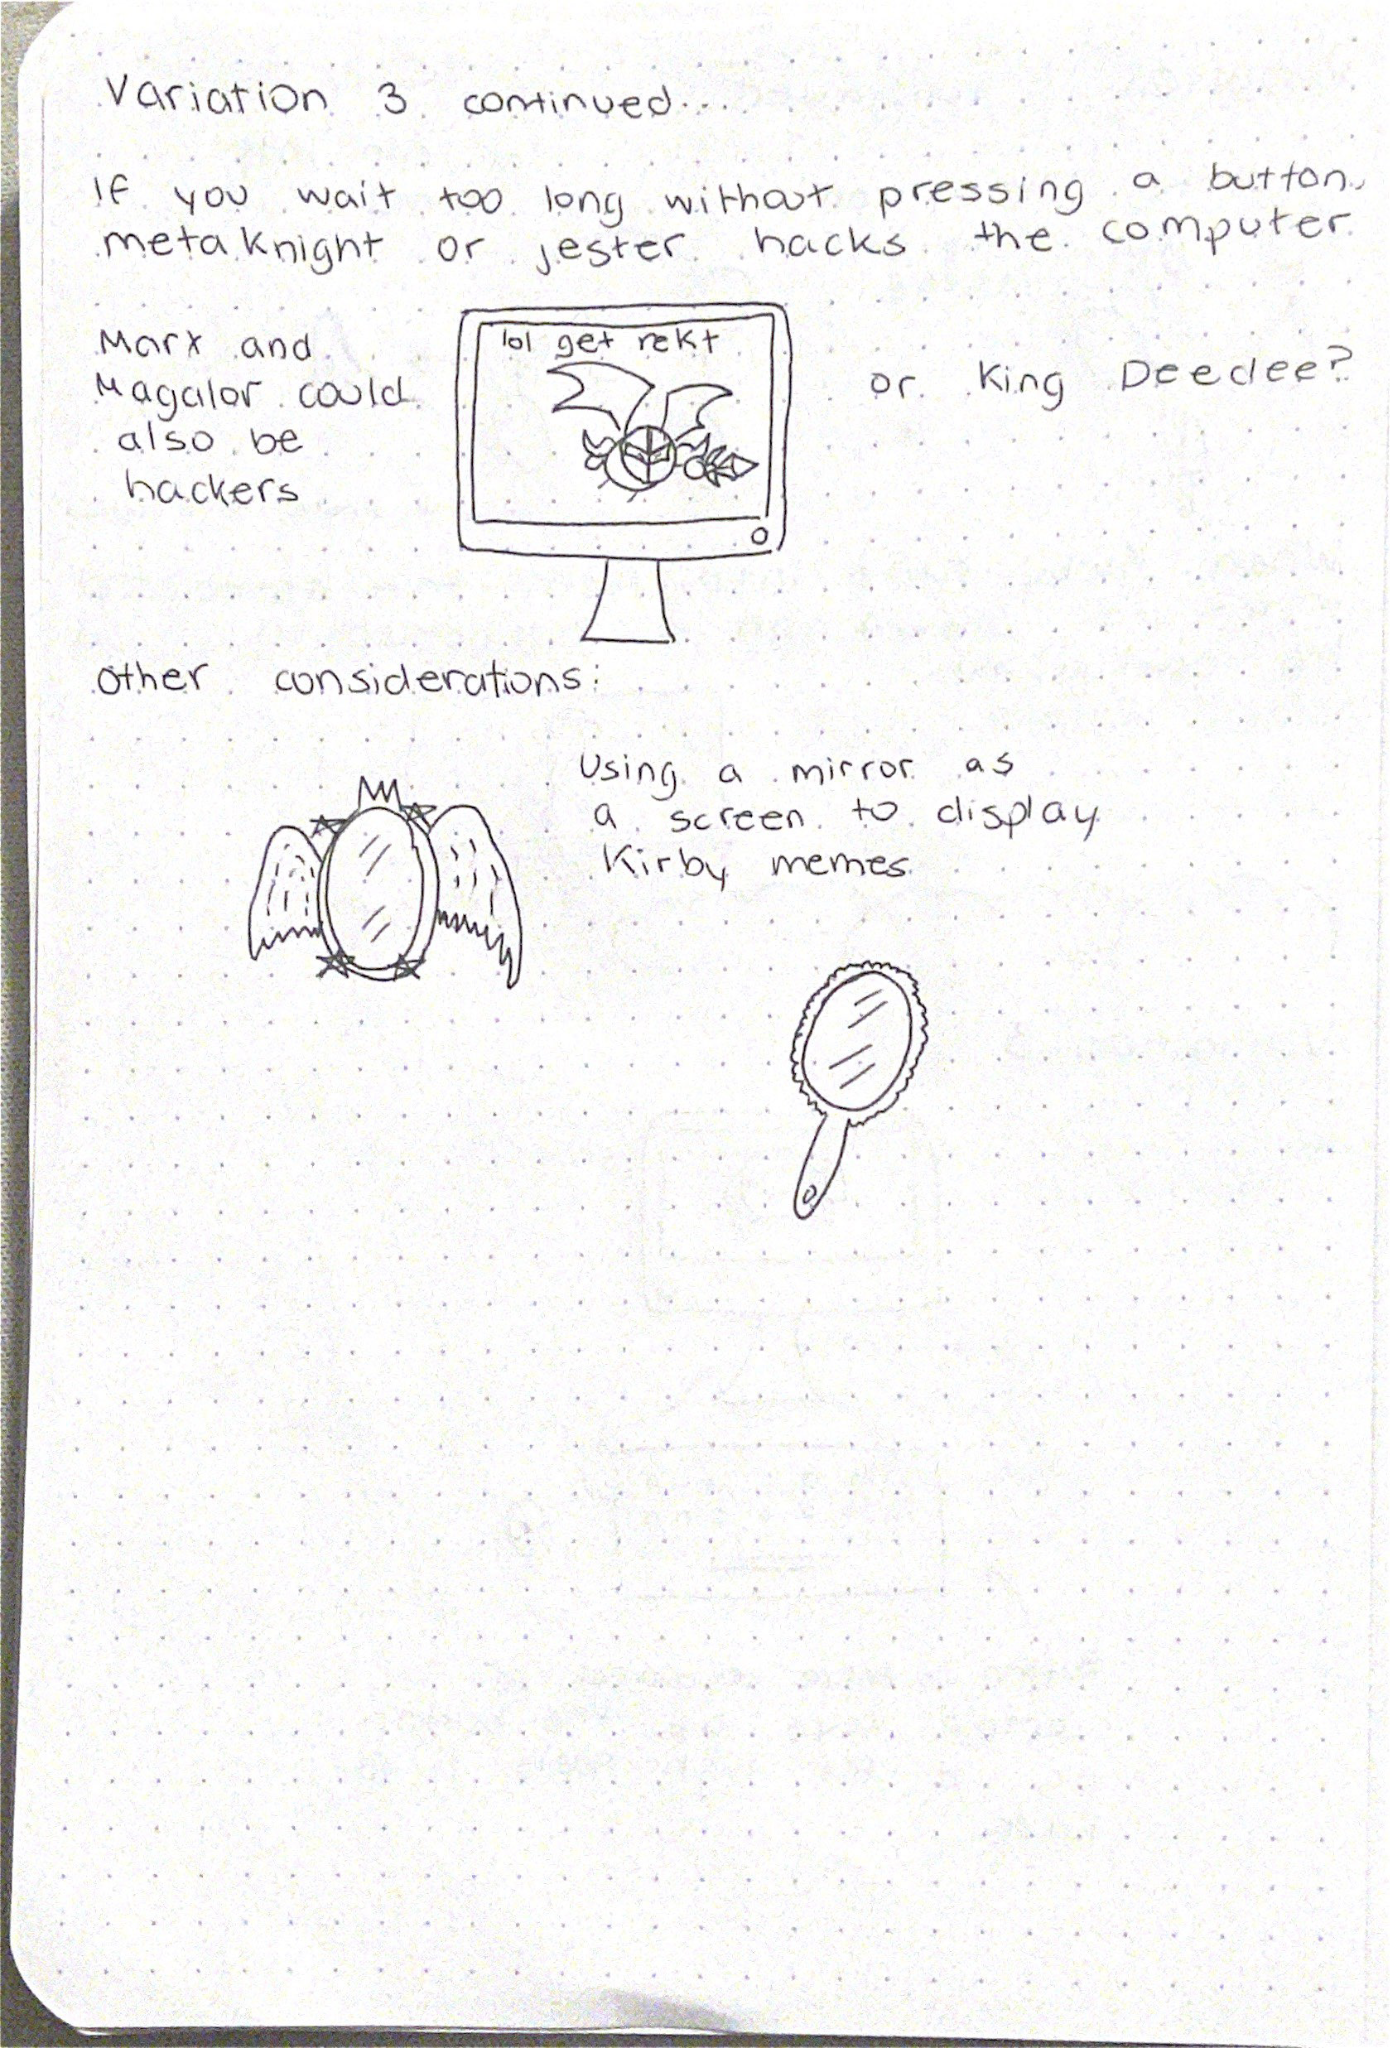 Variation 3 continued...
If you wait too long without pressing a button,
metaknight or jester hacks the computer
Marx and
Magalor could
also be
hackers
lol get rekt
or King Deedee?
Other considerations:
Using a mirror as
a screen to display
Kirby memes